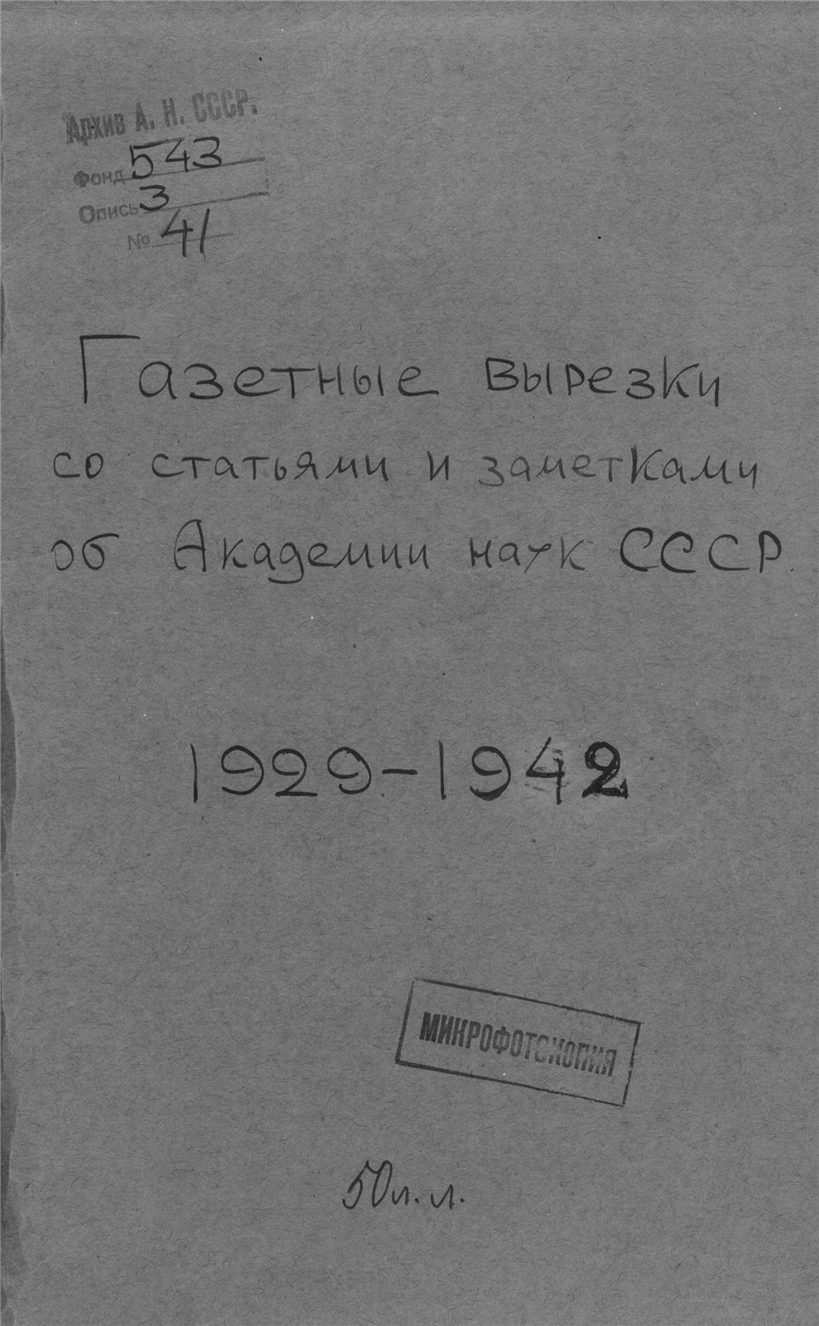 Архив А. Н. СССР.
Фонд 543
Опись 3
№ 41
Газетные вырезки
со статьями и заметками
об Академии наук СССР
1929-1942
МИКРОФОТОКОПИЯ
50 л.л.